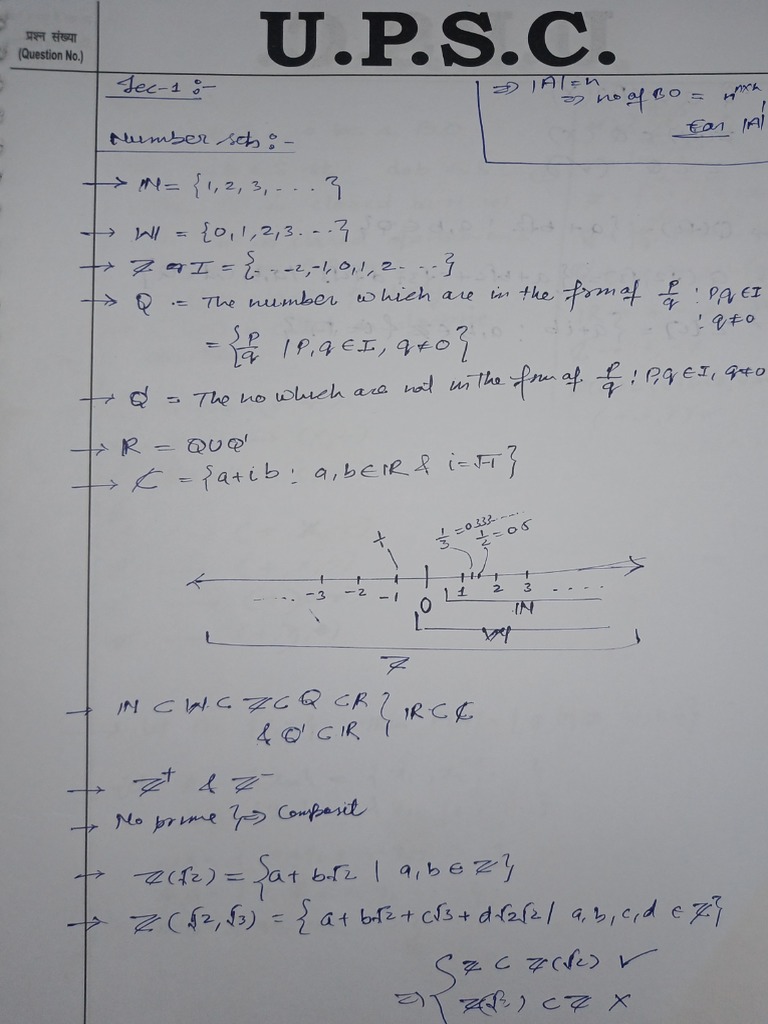 प्रश्न संख्या
(Question No.)
U.P.S.C.
Sec-1 :-
⇒ |A|=n
⇒ no of BO = n^{n×n}
|A|
Number sets :-
→ ℕ = {1, 2, 3, ....}
→ W = {0, 1, 2, 3...}
→ ℤ or I = {... -2, -1, 0, 1, 2....}
→ Q = The number which are in the form of p/q : p,q ∈ I
: q≠0
= {p/q | p, q ∈ I, q≠0}
→ Q' = The no which are not in the form of p/q : p,q ∈ I, q≠0
→ ℝ = Q∪Q'
→ ℂ = {a+ib : a,b ∈ ℝ & i=√-1}
1/3 = 0.333..... 1/2 = 0.5
..... -3 -2 -1 0 1 2 3 ....
ℕ
W
ℤ
→ ℕ ⊂ W ⊂ ℤ ⊂ Q ⊂ ℝ } ℝ ⊂ ℂ
& Q' ⊂ ℝ
→ ℤ⁺ & ℤ⁻
→ No prime } ⇒ Composit
→ ℤ(√2) = {a+b√2 | a,b ∈ ℤ}
→ ℤ(√2,√3) = {a+b√2+c√3+d√2√2 | a,b,c,d ∈ ℤ}
⇒ { ℤ ⊂ ℤ(√2) ✓
ℤ(√2) ⊂ ℤ ×